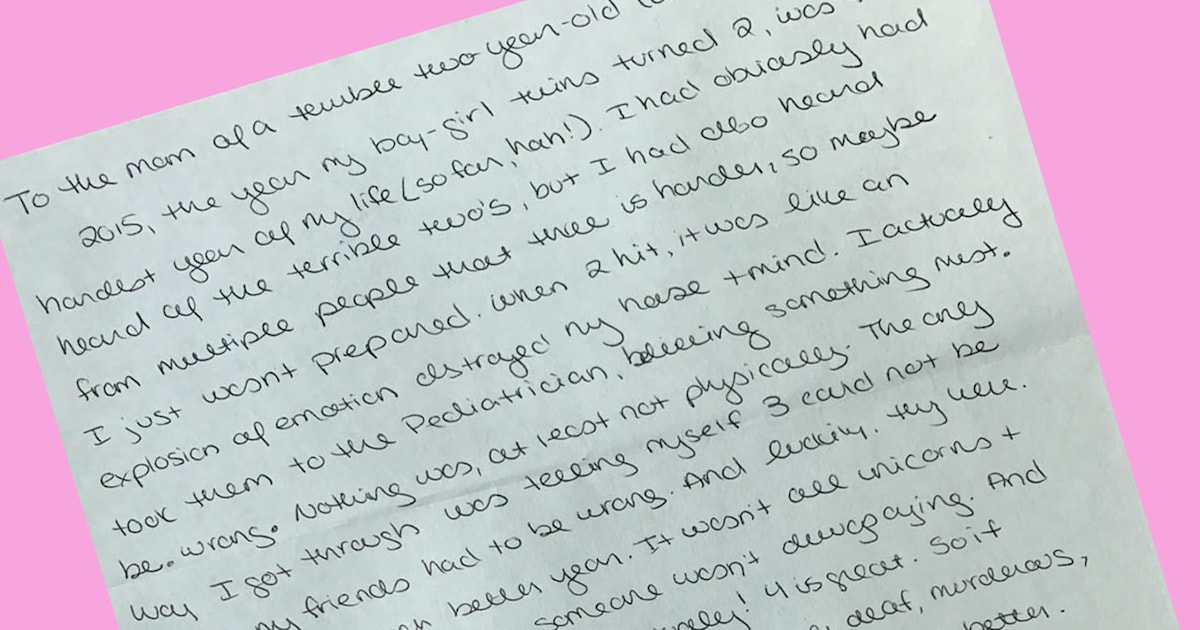 To the mom of a terrible two year-old
2015, the year my boy-girl twins turned 2, was
hardest year of my life (so far, hah!). I had obviasly had
heard of the terrible two's, but I had also heard
from multiple people that three is harder, so maybe
I just wasn't prepared. When 2 hit, it was like an
explosion of emotion destroyed my house + mind. I actually
took them to the Pediatrician, believing something must.
be. wrong. Nothing was, at least not physically. The only
way I got through was telling myself 3 could not be
my friends had to be wrong. And luckily, they were.
better year. It wasn't all unicorns +
someone wasn't
And
4 is great. So if
deaf, murderous,
better.